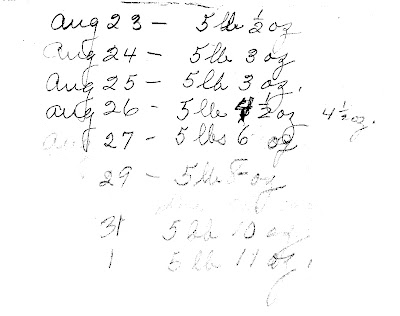 Aug 23 - 5 lb ½ oz
Aug 24 - 5 lb 3 oz
Aug 25 - 5 lb 3 oz.
Aug 26 - 5 lb 4½ oz 4½ oz.
Aug 27 - 5 lbs 6 oz
29 - 5 lb 8 oz
31 5 lb 10 oz
1 5 lb 11 oz.